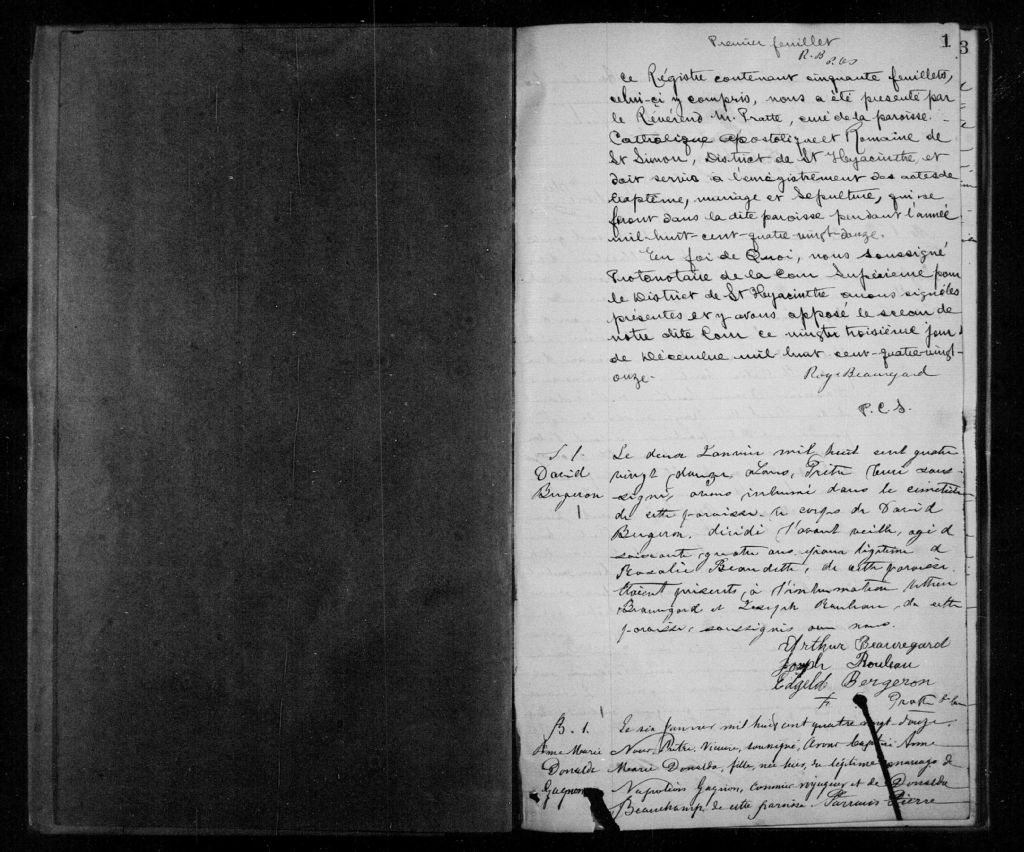 Premier feuillet
1
3
R.B
P.C.S
Ce Régistre contenant cinquante feuillets,
celui-ci y compris, nous a été presenté par
le Révérend M. Pratte, curé de la paroisse
Catholique Apostolique et Romaine de
St Simon, District de St Hyacinthe, et
doit servir a l'enrégistrement des actes de
baptême, mariage et sépulture, qui se
feront dans la dite paroisse pendant l'année
mil-huit-cent-quatre-vingt-douze.
En foi de Quoi, nous soussigné
Protonotaire de la Cour Supérieure pour
le District de St Hyacinthe avons signé les
présentes et y avons apposé le sceau de
notre dite Cour ce vingt troisième jour
de Décembre mil huit cent-quatre-vingt-
onze.
Roy & Beauregard
P.C.S.
S. 1.
David
Bergeron
Le deux Janvier mil huit cent quatre
vingt douze Nous, Prêtre Curé sous-
signé, avons inhumé dans le cimetière
de cette paroisse le corps de David
Bergeron, décédé l'avant veille, agé de
soixante quatre ans, époux légitime de
Rosalie Beaudette, de cette paroisse.
Etaient présents à l'inhumation Arthur
Beauregard et Joseph Rouleau, de cette
paroisse, soussignés avec nous.
Arthur Beauregard
Joseph Rouleau
Bergeron
F. Pratte
B. 1.
Anne Marie
Donalda
Gagnon
Le six Janvier mil huit cent quatre vingt douze,
Nous Prêtre, Vicaire, soussigné, avons baptisé Anne
Marie Donalda, fille, née hier, du légitime mariage de
Napoléon Gagnon, commis voyageur et de Donalda
Beauchamp de cette paroisse. Parrain Pierre